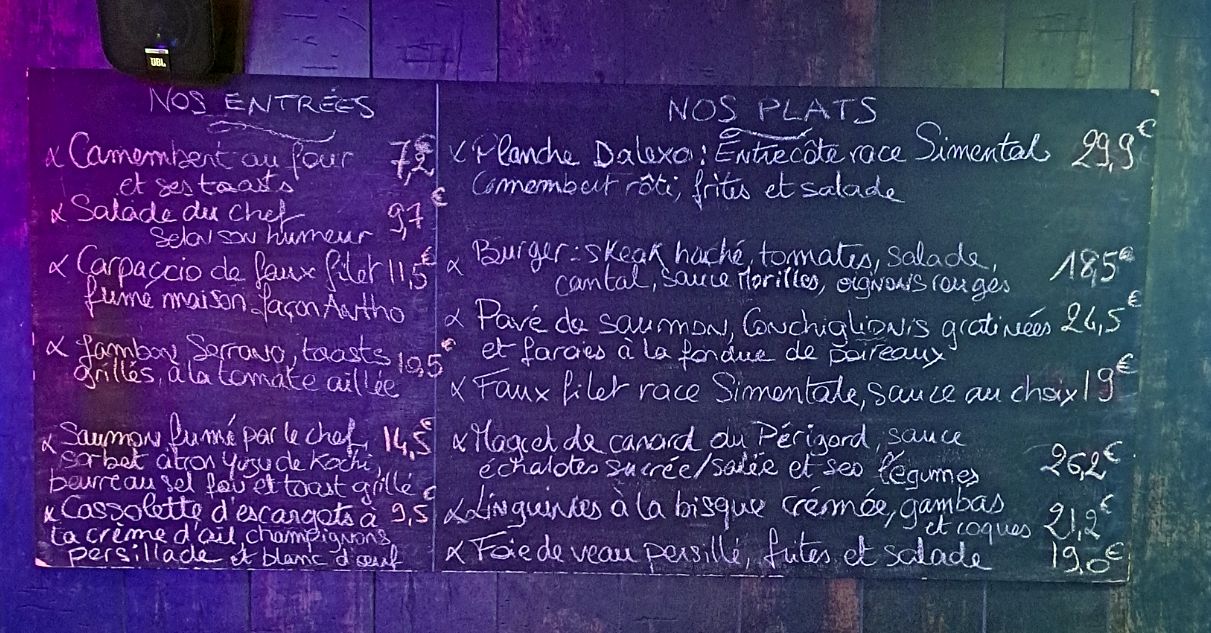 UBL
NOS ENTRÉES
α Camembert au four 7,2€
et ses toasts
α Salade du chef 9,7€
selon son humeur
α Carpaccio de faux filet 11,5€
fumé maison façon Antho
α Jambon Serrano, toasts 10,5€
grillés, à la tomate aillée
α Saumon fumé par le chef, 14,5€
sorbet citron yuzu de Kochi,
beurre au sel fou et toast grillé
α Cassolette d'escargots à 9,5€
la crème d'ail, champignons
persillade et blanc d'œuf
NOS PLATS
α Planche Dalexo : Entrecôte race Simental 29,9€
Camembert rôti, frites et salade
α Burger : skeak haché, tomates, salade, 18,5€
cantal, sauce Morilles, oignons rouges
α Pavé de saumon, Conchiglionis gratinées 24,5€
et farcies à la fondue de poireaux
α Faux filet race Simentale, sauce au choix 19€
α Magret de canard du Périgord, sauce
échalotes sucrée/salée et ses légumes 26,2€
α Linguintes à la bisque crémée, gambas
et coques 21,2€
α Foie de veau persillé, frites et salade 19,0€